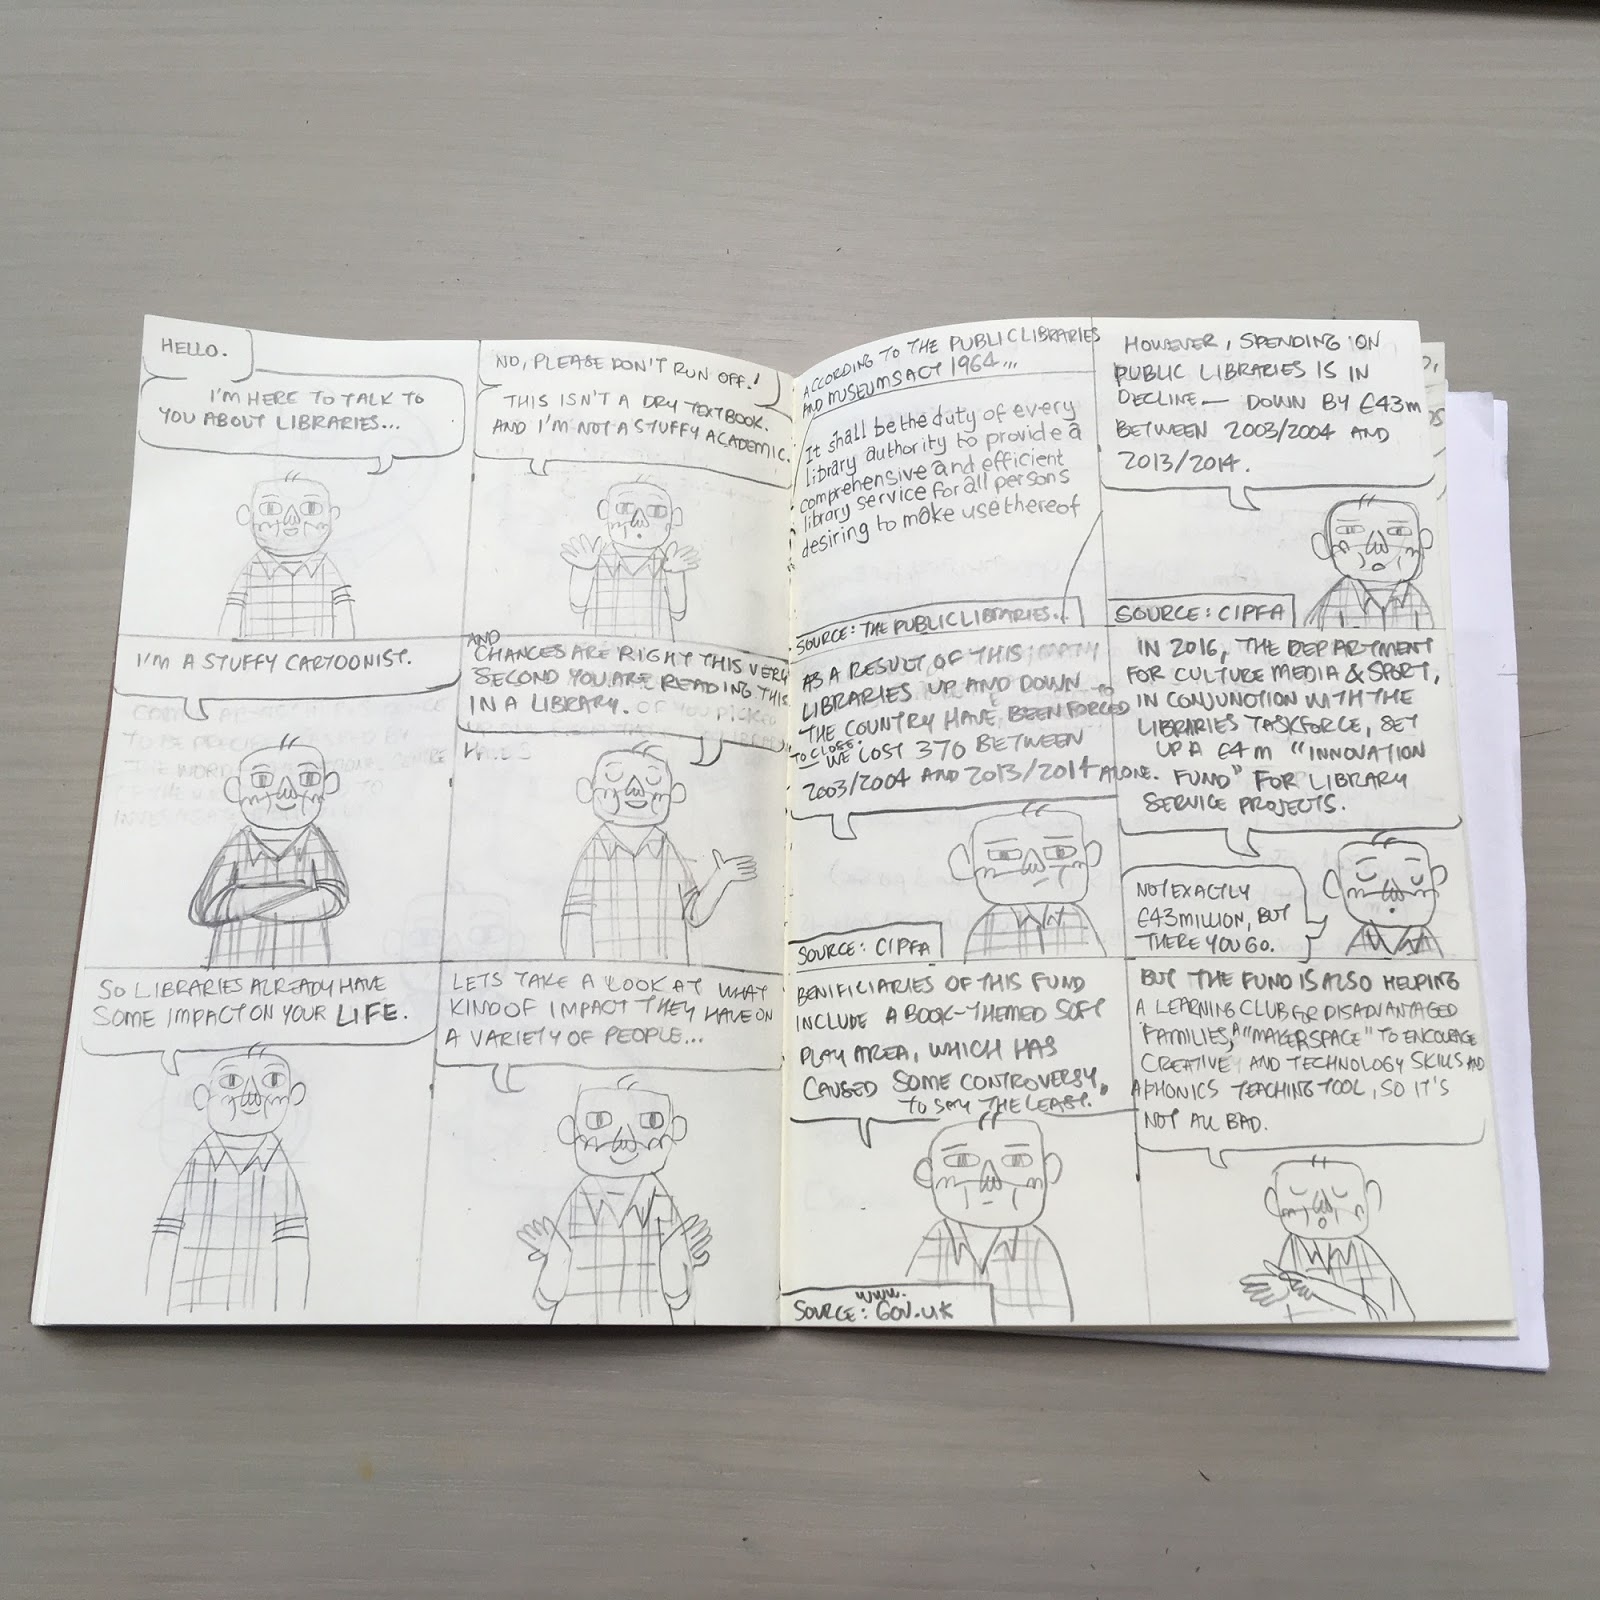 HELLO.
I'M HERE TO TALK TO
YOU ABOUT LIBRARIES...
NO, PLEASE DON'T RUN OFF!
THIS ISN'T A DRY TEXTBOOK.
AND I'M NOT A STUFFY ACADEMIC.
I'M A STUFFY CARTOONIST.
AND
CHANCES ARE RIGHT THIS VERY
SECOND YOU ARE READING THIS
IN A LIBRARY. OR YOU PICKED
SO LIBRARIES ALREADY HAVE
SOME IMPACT ON YOUR LIFE.
LETS TAKE A LOOK AT WHAT
KIND OF IMPACT THEY HAVE ON
A VARIETY OF PEOPLE...
ACCORDING TO THE PUBLIC LIBRARIES
AND MUSEUMS ACT 1964...
It shall be the duty of every
library authority to provide a
comprehensive and efficient
library service for all persons
desiring to make use thereof
SOURCE: THE PUBLIC LIBRARIES...
HOWEVER, SPENDING ON
PUBLIC LIBRARIES IS IN
DECLINE — DOWN BY £43m
BETWEEN 2003/2004 AND
2013/2014.
SOURCE: CIPFA
AS A RESULT OF THIS,
LIBRARIES UP AND DOWN
THE COUNTRY HAVE BEEN FORCED TO
TO CLOSE.
WE LOST 370 BETWEEN
2003/2004 AND 2013/2014 ALONE.
SOURCE: CIPFA
IN 2016, THE DEPARTMENT
FOR CULTURE MEDIA & SPORT,
IN CONJUNCTION WITH THE
LIBRARIES TASKFORCE, SET
UP A £4m "INNOVATION
FUND" FOR LIBRARY
SERVICE PROJECTS.
NOT EXACTLY
£43 MILLION, BUT
THERE YOU GO.
BENIFICIARIES OF THIS FUND
INCLUDE A BOOK-THEMED SOFT
PLAY AREA, WHICH HAS
CAUSED SOME CONTROVERSY,
TO SAY THE LEAST.
www.
SOURCE: GOV.UK
BUT THE FUND IS ALSO HELPING
A LEARNING CLUB FOR DISADVANTAGED
FAMILIES, A "MAKERSPACE" TO ENCOURAGE
CREATIVE AND TECHNOLOGY SKILLS AND
A PHONICS TEACHING TOOL, SO IT'S
NOT ALL BAD.